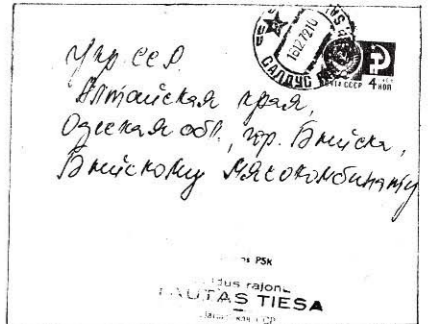 САЛДУС
16127210
ПОЧТА СССР 4 КОП
Укр. ССР
Алтайская края,
Одесская обл., гр. Бийска,
Бийскому Мясокомбинату
PSK
rajon
TAUTAS TIESA